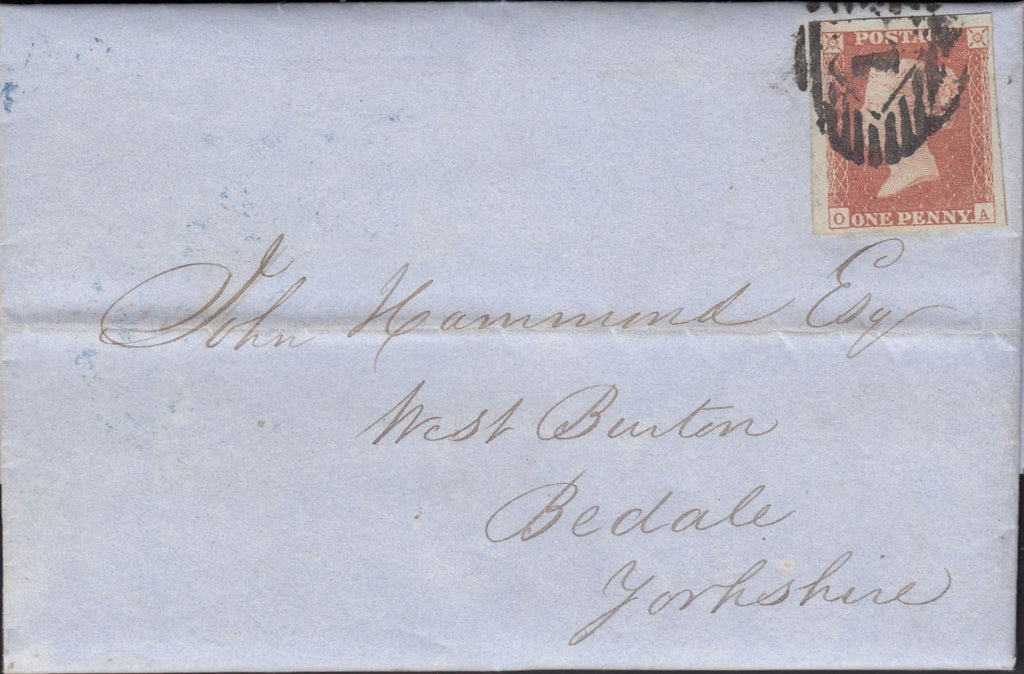 POSTA
O ONE PENNY A
John Hammond Esq
West Burton
Bedale
Yorkshire